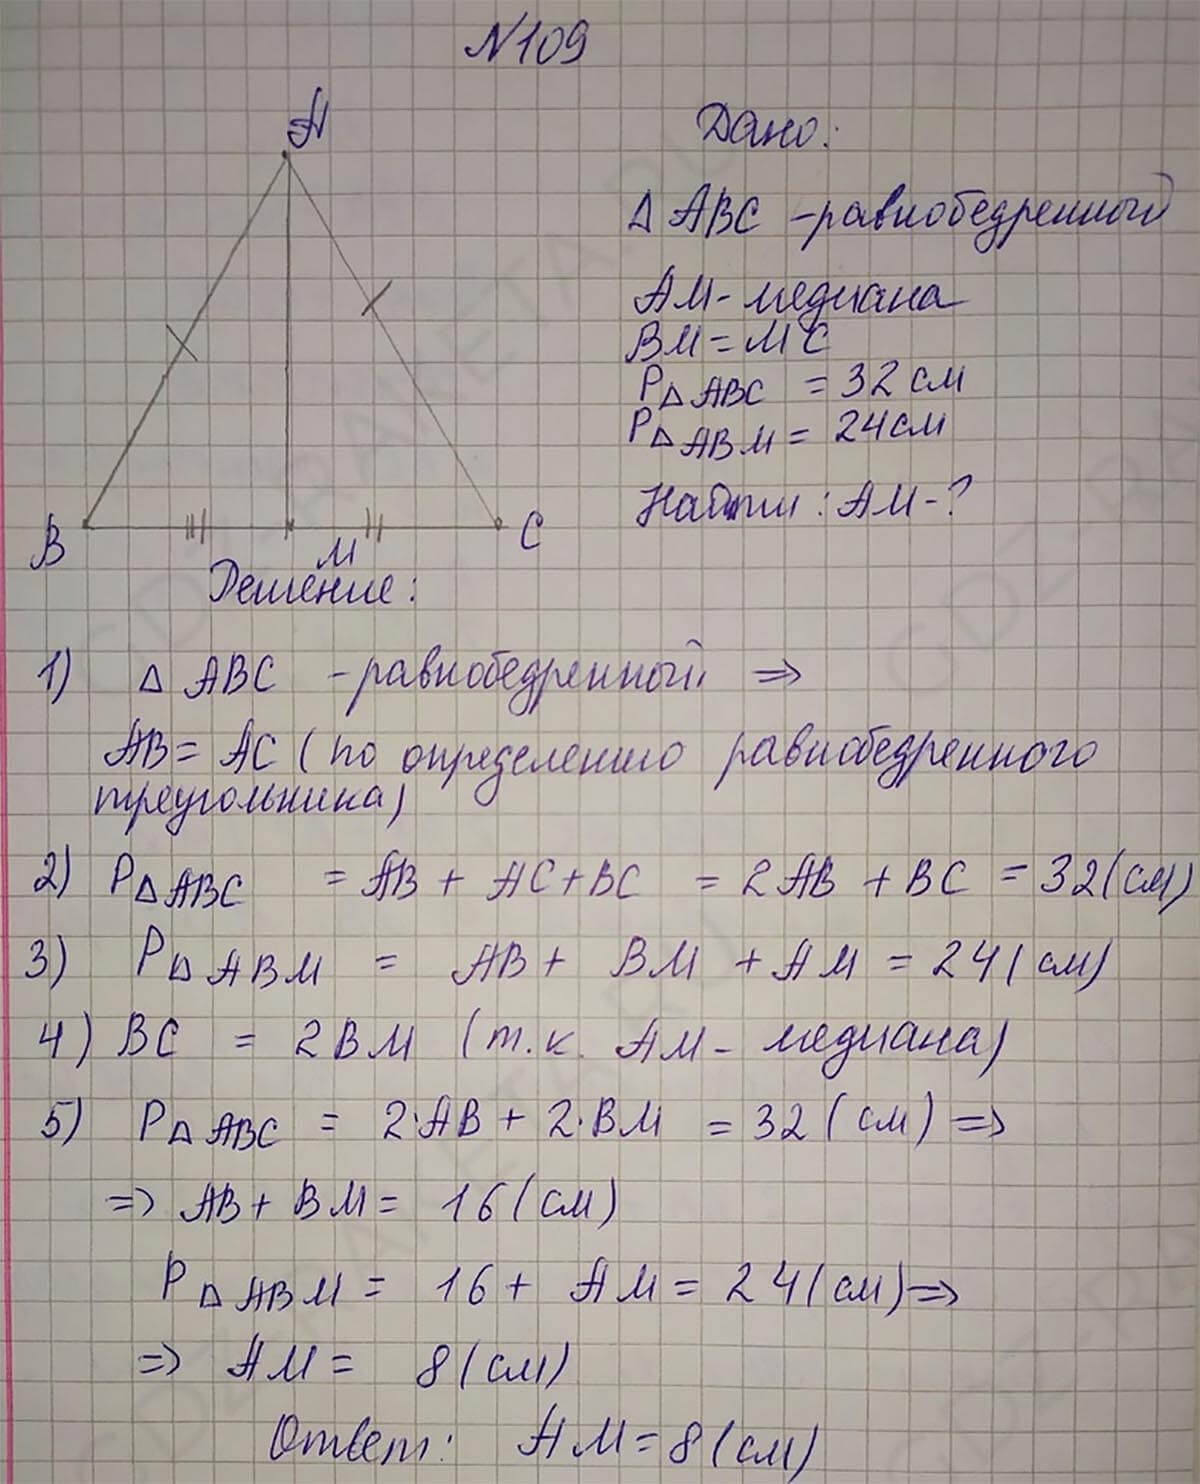 N109
A
Дано:
Δ ABC - равнобедренный
AM - медиана
BM = MC
P Δ ABC = 32 см
P Δ ABM = 24 см
Найти: AM - ?
B
M
C
Решение:
1) Δ ABC - равнобедренный ⇒
AB = AC (по определению равнобедренного
треугольника)
2) P Δ ABC = AB + AC + BC = 2AB + BC = 32 (см)
3) P Δ ABM = AB + BM + AM = 24 (см)
4) BC = 2BM (т.к. AM - медиана)
5) P Δ ABC = 2·AB + 2·BM = 32 (см) ⇒
⇒ AB + BM = 16 (см)
P Δ ABM = 16 + AM = 24 (см) ⇒
⇒ AM = 8 (см)
Ответ: AM = 8 (см)